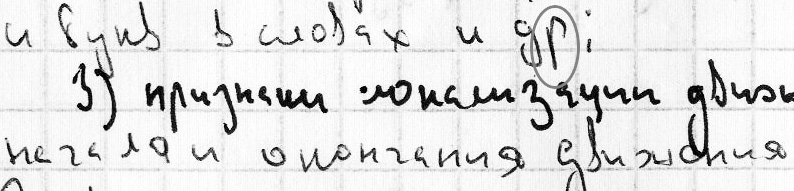 и букв в словах и др;
3) признаки локализации движ
начала и окончания движения